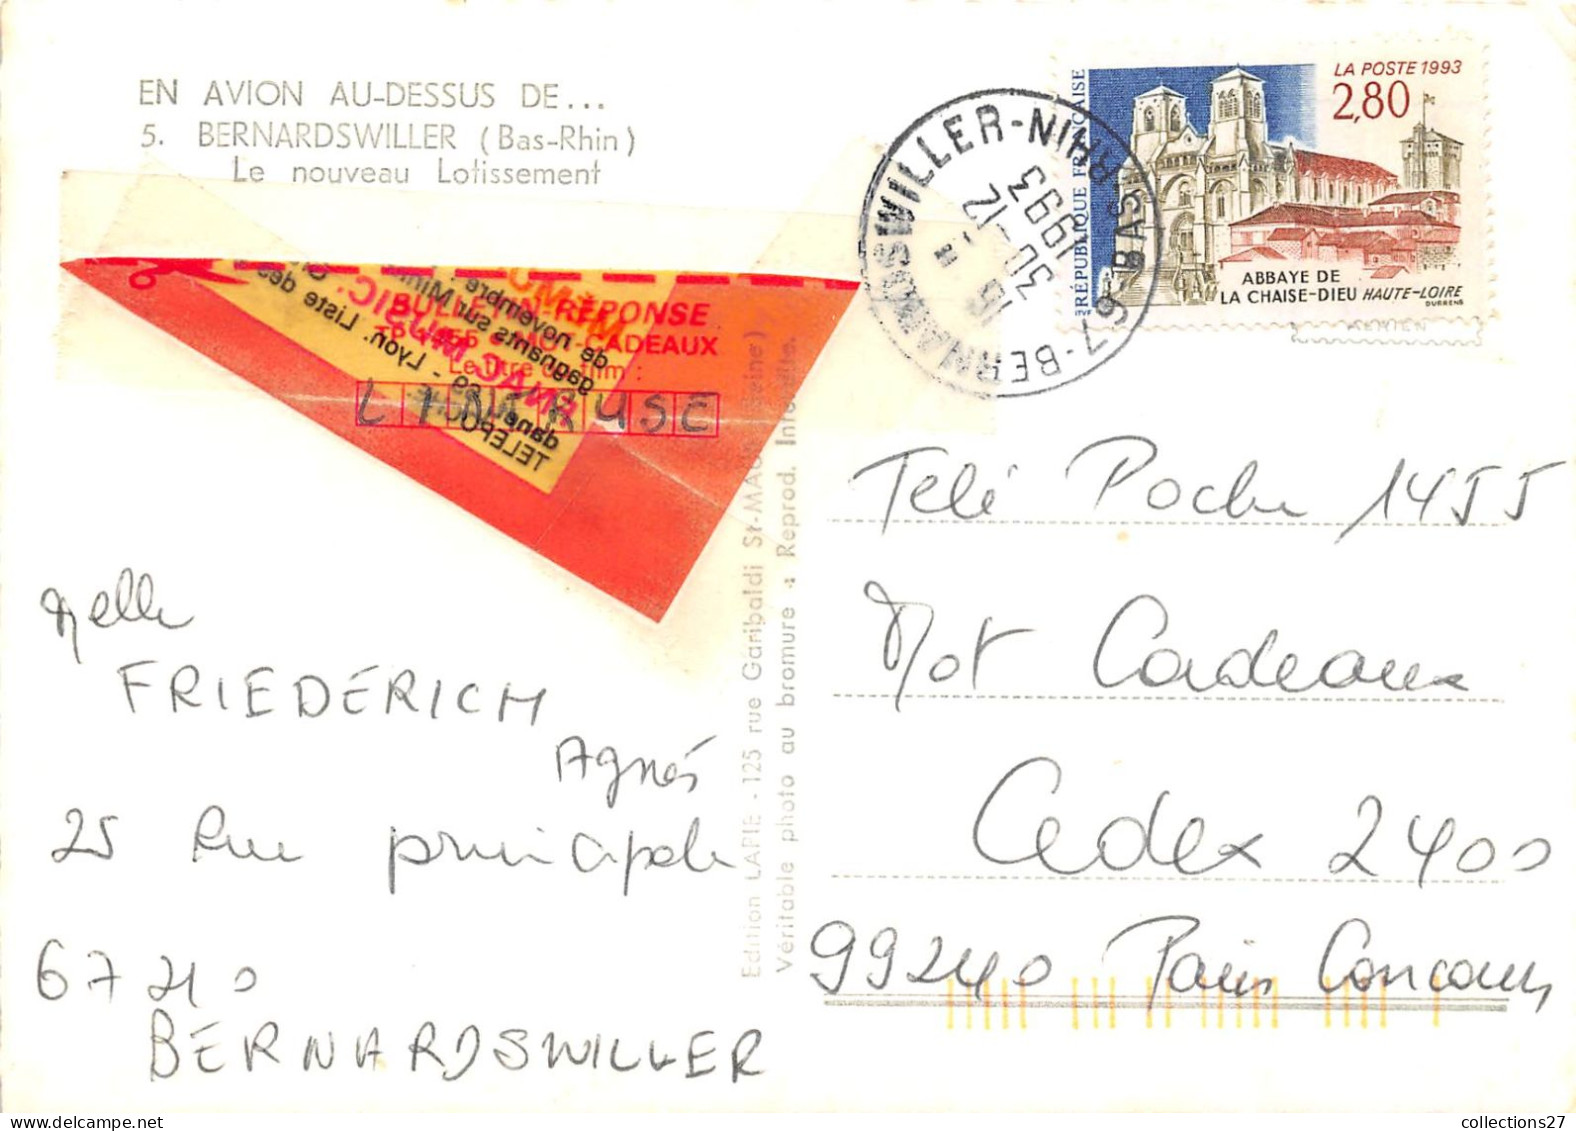 EN AVION AU-DESSUS DE...
5. BERNARDSWILLER (Bas-Rhin)
Le nouveau Lotissement
BULLETIN-RÉPONSE
MOT-CADEAUX
Le titre du film :
L RUSE
Melle
FRIEDERICH
Agnés
25 Rue principale
67210
BERNARDSWILLER
Edition LAPIE - 125 rue Garibaldi St-MAUR (Seine)
Véritable photo au bromure - Reprod. Interdite.
67-BERNARDSWILLER-RHIN BAS
15 H
30-12
1993
RÉPUBLIQUE FRANÇAISE
LA POSTE 1993
2,80
ABBAYE DE
LA CHAISE-DIEU HAUTE-LOIRE
DURRENS
Télé Poche 1455
Mot Cadeaux
Cedex 2400
99240 Paris Concours
collections27